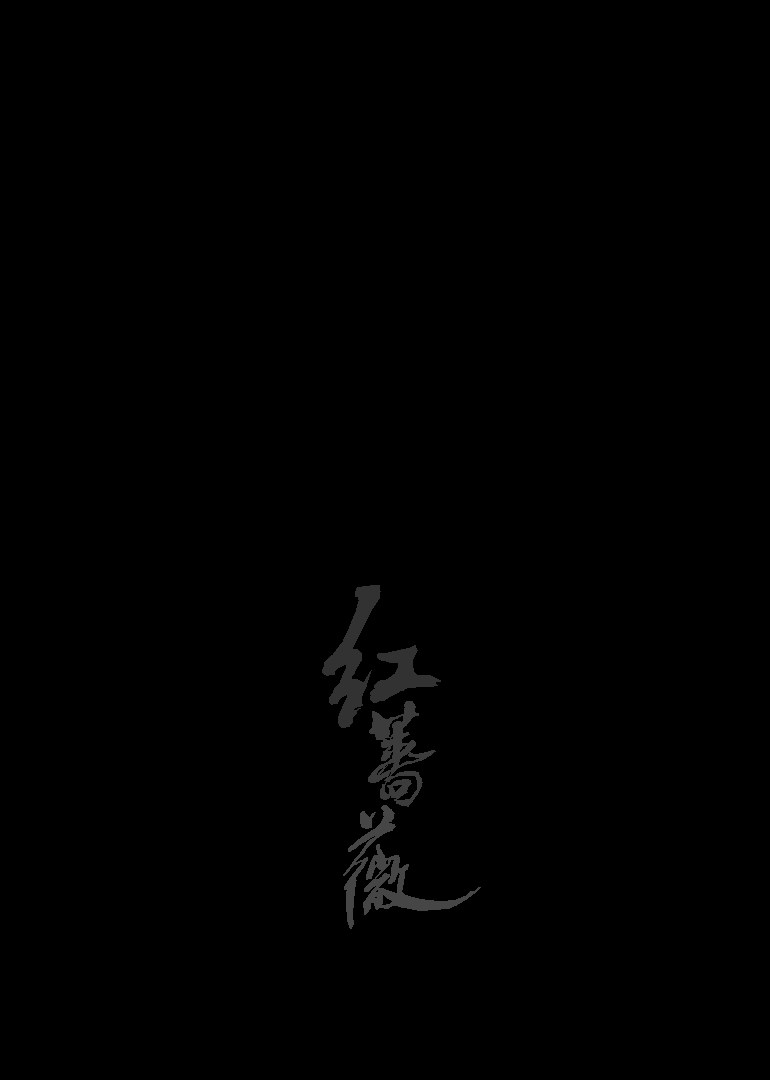 红蔷薇